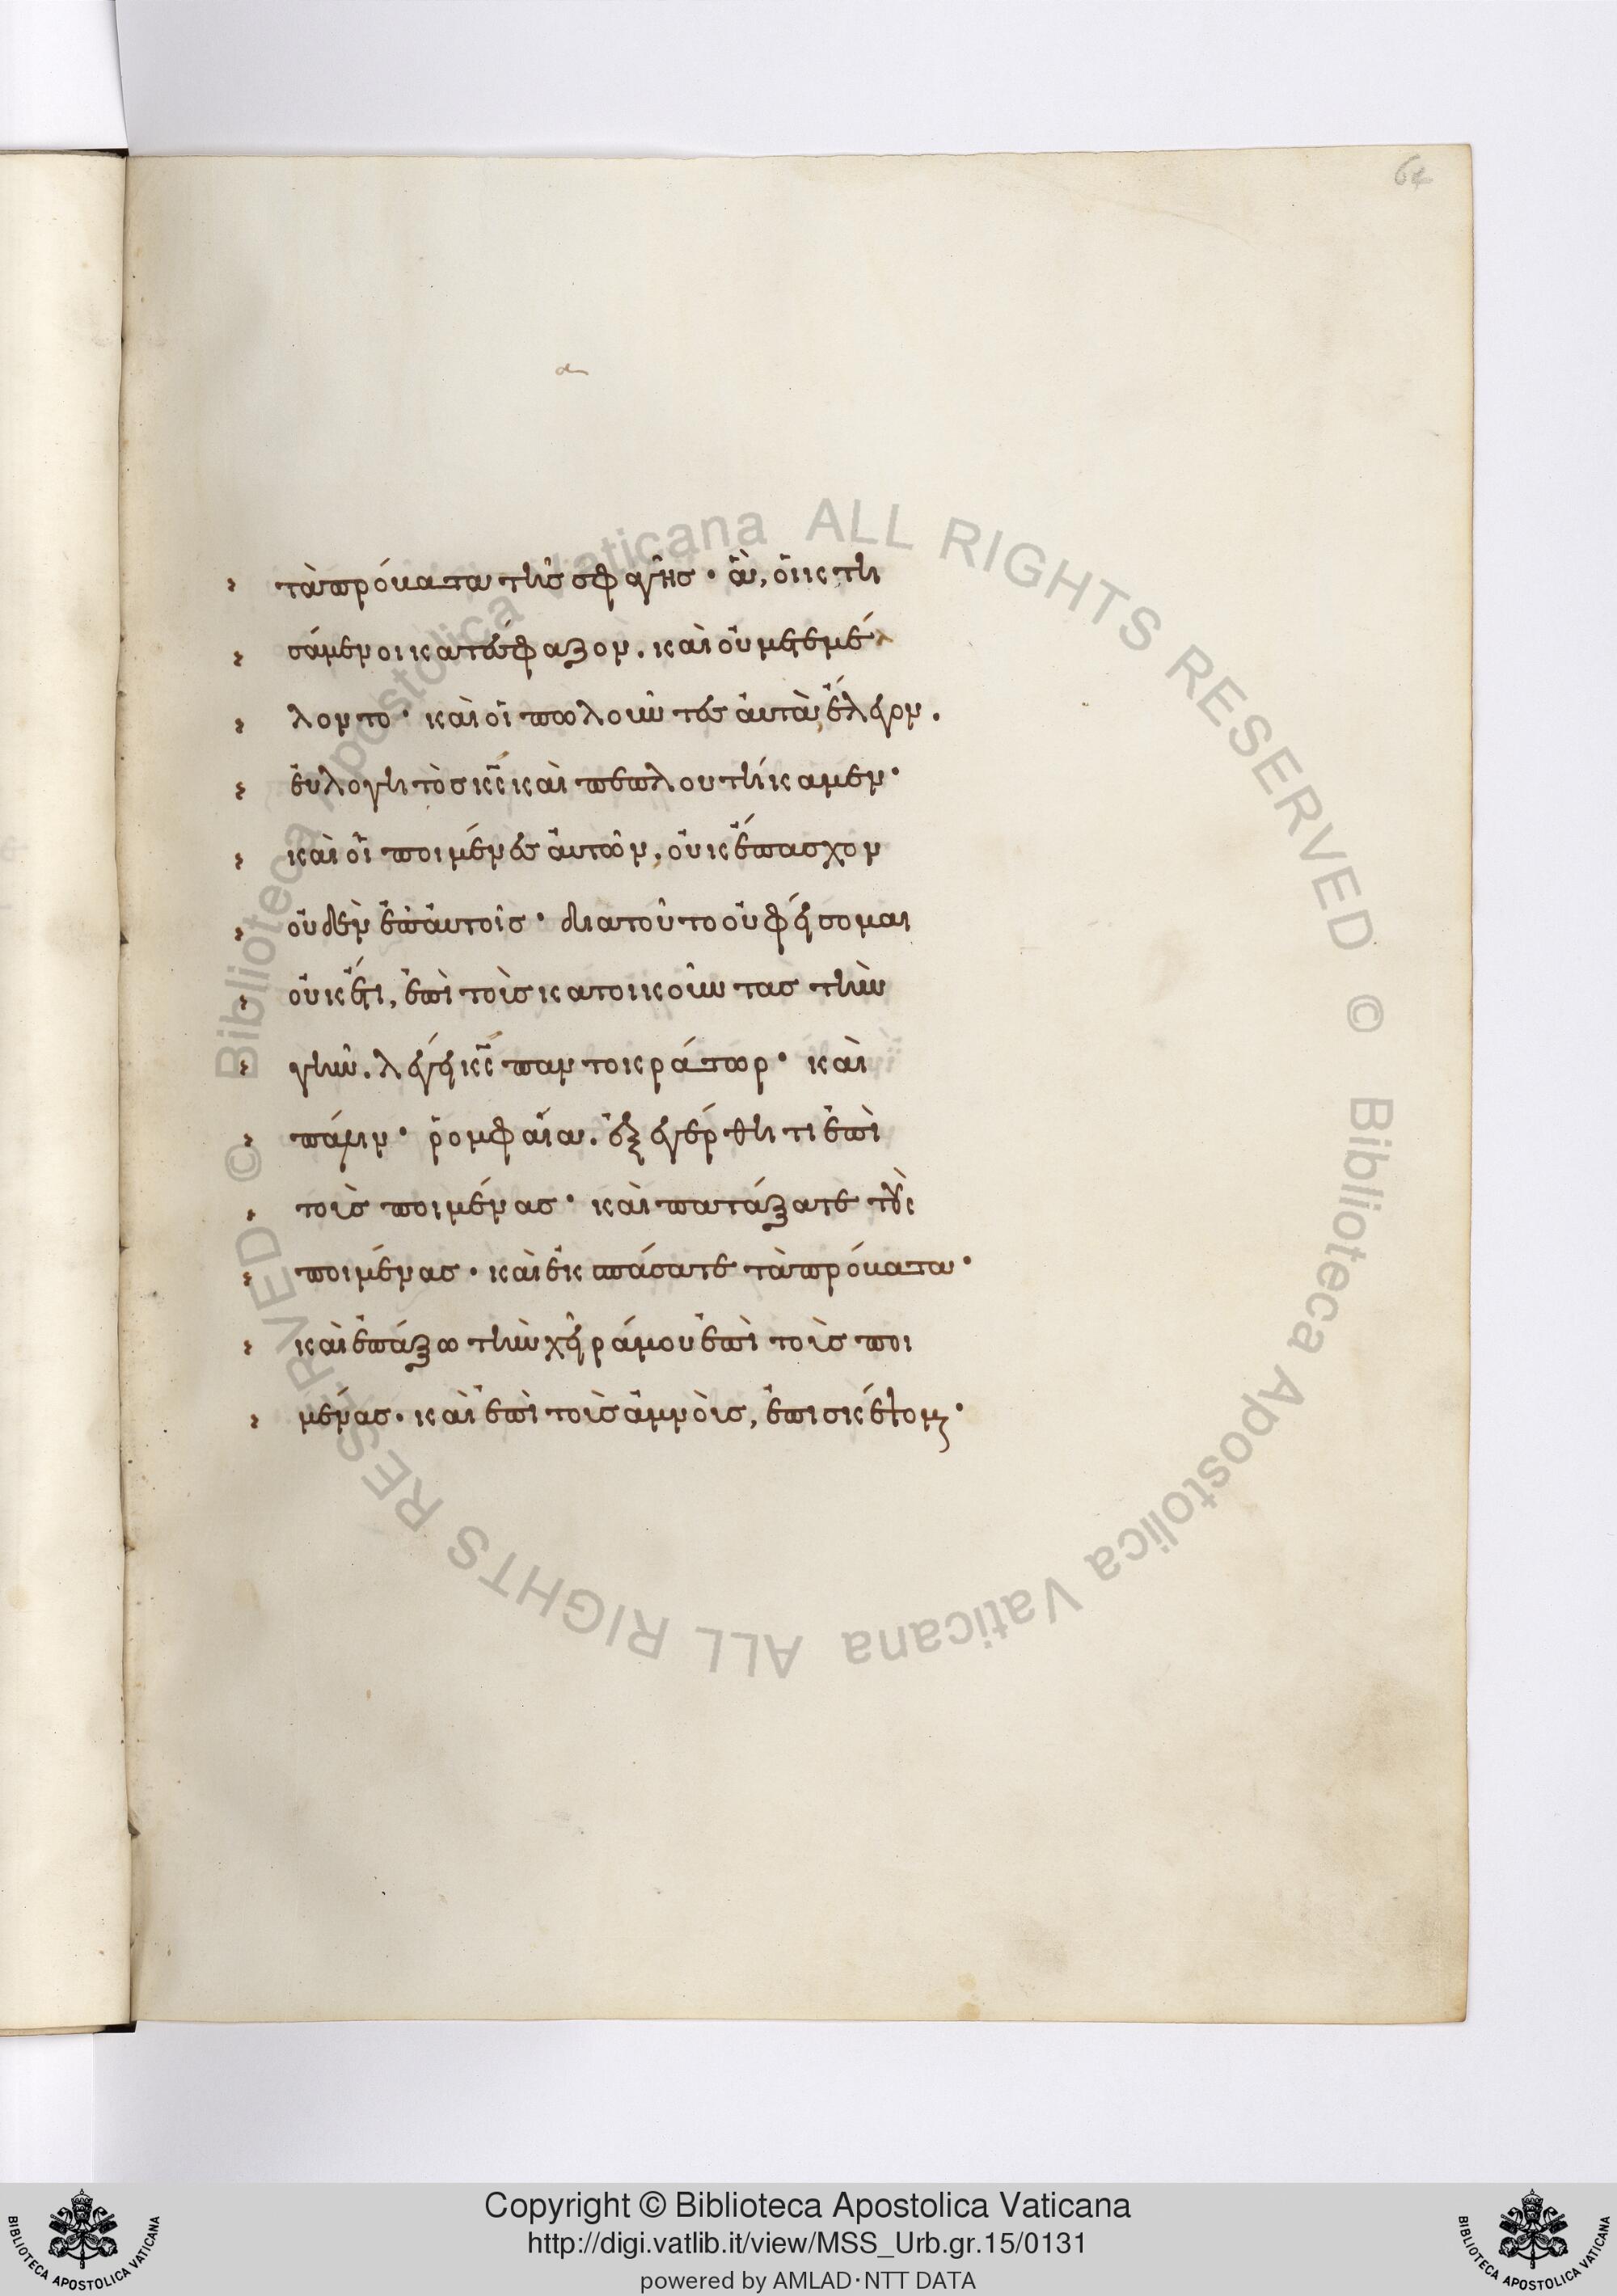 64
τὰ πρόβατα τῆς σφαγῆς· ἃ, οἱ κτη
σάμενοι κατέσφαζον. καὶ οὐ μετεμέ
λοντο· καὶ οἱ πωλοῦντες αὐτὰ ἔλεγον.
εὐλογητὸς κς̅ καὶ πεπλουτήκαμεν·
καὶ οἱ ποιμένες αὐτῶν, οὐκ ἔπασχον
οὐδὲν ἐπ' αὐτοῖς· διατοῦτο οὐ φείσομαι
οὐκέτι, ἐπὶ τοὺς κατοικοῦντας τὴν
γῆν. λέγει κς̅ παντοκράτωρ· καὶ
πάλιν· ῥομφαία. ἐξεγέρθητι ἐπὶ
τοὺς ποιμένας· καὶ πατάξατε τοὺς
ποιμένας· καὶ ἐκσπάσατε τὰ πρόβατα·
καὶ ἐπάξω τὴν χεῖρά μου ἐπὶ τοὺς ποι
μένας· καὶ ἐπὶ τοὺς ἀμνοὺς, ἐπισκέψομαι·
Copyright © Biblioteca Apostolica Vaticana
http://digi.vatlib.it/view/MSS_Urb.gr.15/0131
powered by AMLAD·NTT DATA
BIBLIOTECA APOSTOLICA VATICANA
BIBLIOTECA APOSTOLICA VATICANA
© Biblioteca Apostolica Vaticana ALL RIGHTS RESERVED © Biblioteca Apostolica Vaticana ALL RIGHTS RESERVED